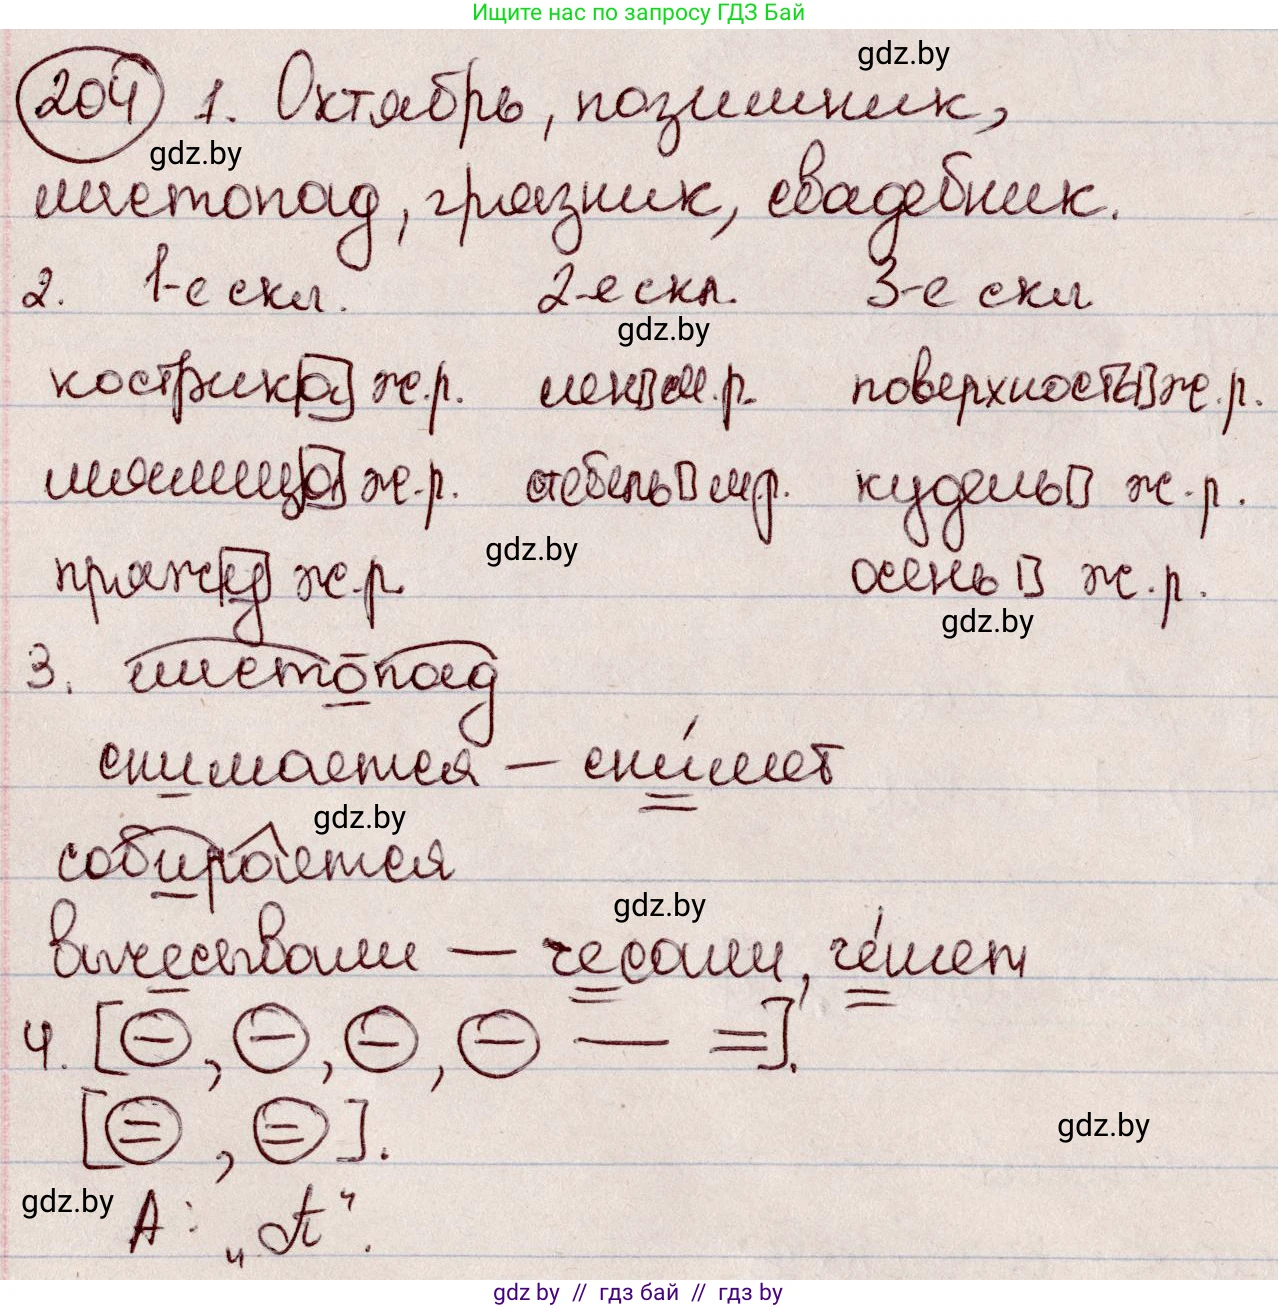 Ищите нас по запросу ГДЗ Бай
gdz.by
204 1. Октябрь, позимник,
gdz.by
листопад, грязник, свадебник.
2. 1-е скл. 2-е скл. 3-е скл
gdz.by
кострика ж.р. лен м.р. поверхность ж.р.
мялица ж.р. стебель м.р. кудель ж.р.
gdz.by
пряжа ж.р. осень ж.р.
gdz.by
3. листопад
снимается – сни́мет
gdz.by
собирается
gdz.by
вычесывали – чесали, че́шет
4. [–, –, –, – — =].
[=, =].
gdz.by
gdz.by
А: „А“.
gdz by // гдз бай // гдз by